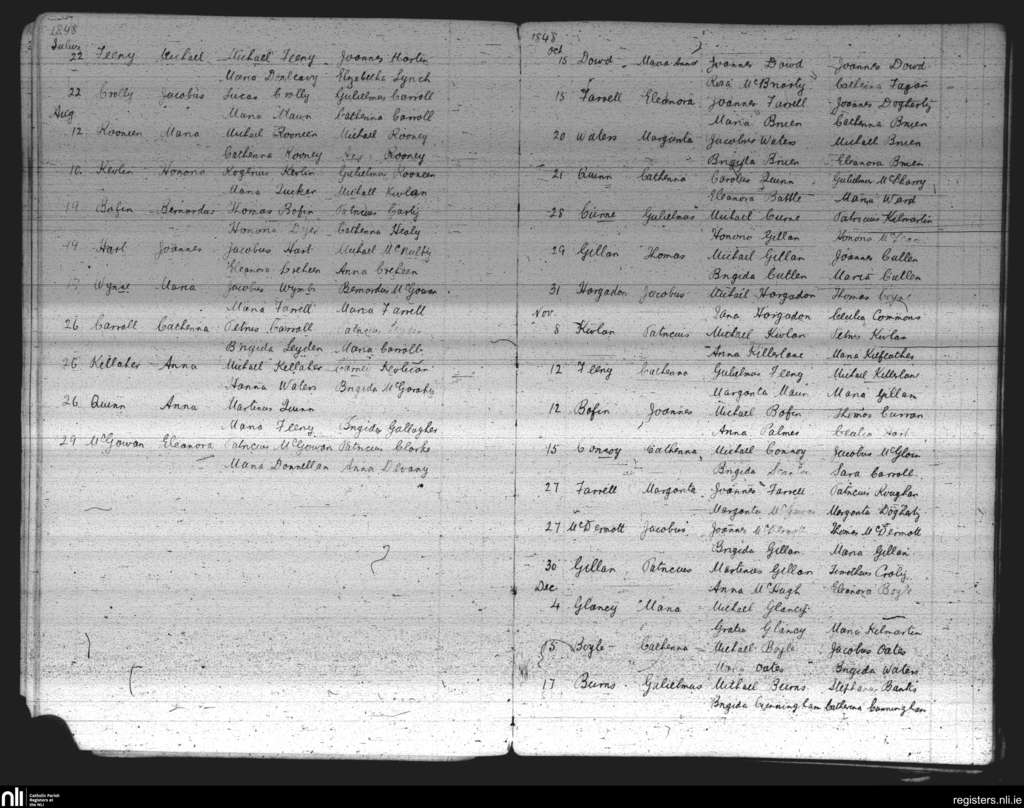 1848
Julius
22 Feeny Michael Michael Feeny Joannes Hartin
Maria Donleavy Elizabetha Lynch
22 Crolly Jacobus Lucas Crolly Gulielmus Carroll
Aug
Maria Maun Catherina Carroll
12 Rooneen Maria Michael Rooneen Michael Rooney
Catherina Rooney Rooney
Kevlin Honora Rogerius Kevlin Gulielmus Rooneen
Maria Tucker Michael Kivlan
19 Bofin Bernardus Thomas Bofin Patricius
Honoria Dyer Catherina Healy
19 Hart Joannes Jacobus Hart Michael McNulty
Eleanora Creheen Anna Creheen
Wynne Maria Jacobus Wynn Bernardus McGowan
Maria Farrell Maria Farrell
26 Carroll Catherina Petrus Carroll Patricius
Brigida Leyden Maria Carroll
26 Kellaher Anna Michael Kellaher
Hanna Waters Brigida McGorahy
26 Quinn Anna Martinus Quinn
Maria Feeny Brigida Gallagher
29 McGowan Eleanora Patricius McGowan Patricius Clarke
Maria Donnellan Anna Devany
1848
Oct
15 Dowd Maria Anna Joannes Dowd Joannes Dowd
McBriarty Catherina Fagan
15 Farrell Eleanora Joannes Farrell Joannes Dogherty
Maria Brien Catherina Brien
20 Waters Margarita Jacobus Waters Michael Brien
Brigida Brien Eleanora Brien
21 Quinn Catherina Carolus Quinn Gulielmus McSharry
Eleanora Battle Maria Ward
28 Curne Gulielmus Michael Curne Patricius Kilmartin
Honora Gillan Honora
29 Gillan Thomas Michael Gillan Joannes Cullen
Brigida Cullen Maria Cullen
31 Horgadon Jacobus Michael Horgadon Thomas
Nov.
Sara Horgadon Cecilia Commons
8 Kivlan Patricius Michael Kivlan Petrus Kivlan
Anna Killerlane Maria Kilfeather
12 Feeny Catherina Gulielmus Feeny Michael Killerlane
Margarita Maun Maria Gillan
12 Bofin Joannes Michael Bofin Thomas Curran
Anna Palmer Cecilia Hart
15 Conroy Catherina Michael Conroy Jacobus McGloin
Brigida Sara Carroll
27 Farrell Margarita Joannes Farrell Patricius Roughan
Margarita McGowan Margarita Dogharty
27 McDermott Jacobus Joannes McDermott Thomas McDermott
Brigida Gillan Maria Gillan
30 Gillan Patricius Martinus Gillan Timotheus Croly
Dec
Anna McHugh Eleanora Boyle
4 Glancy Maria Michael Glancy
Gratia Glancy Maria Kilmartin
15 Boyle Catherina Michael Boyle Jacobus Oates
Maria Oates Brigida Waters
17 Burns Gulielmus Michael Burns Stephanus Banks
Brigida Cunningham Catherina Cunningham
nli Catholic Parish Registers at the NLI
registers.nli.ie